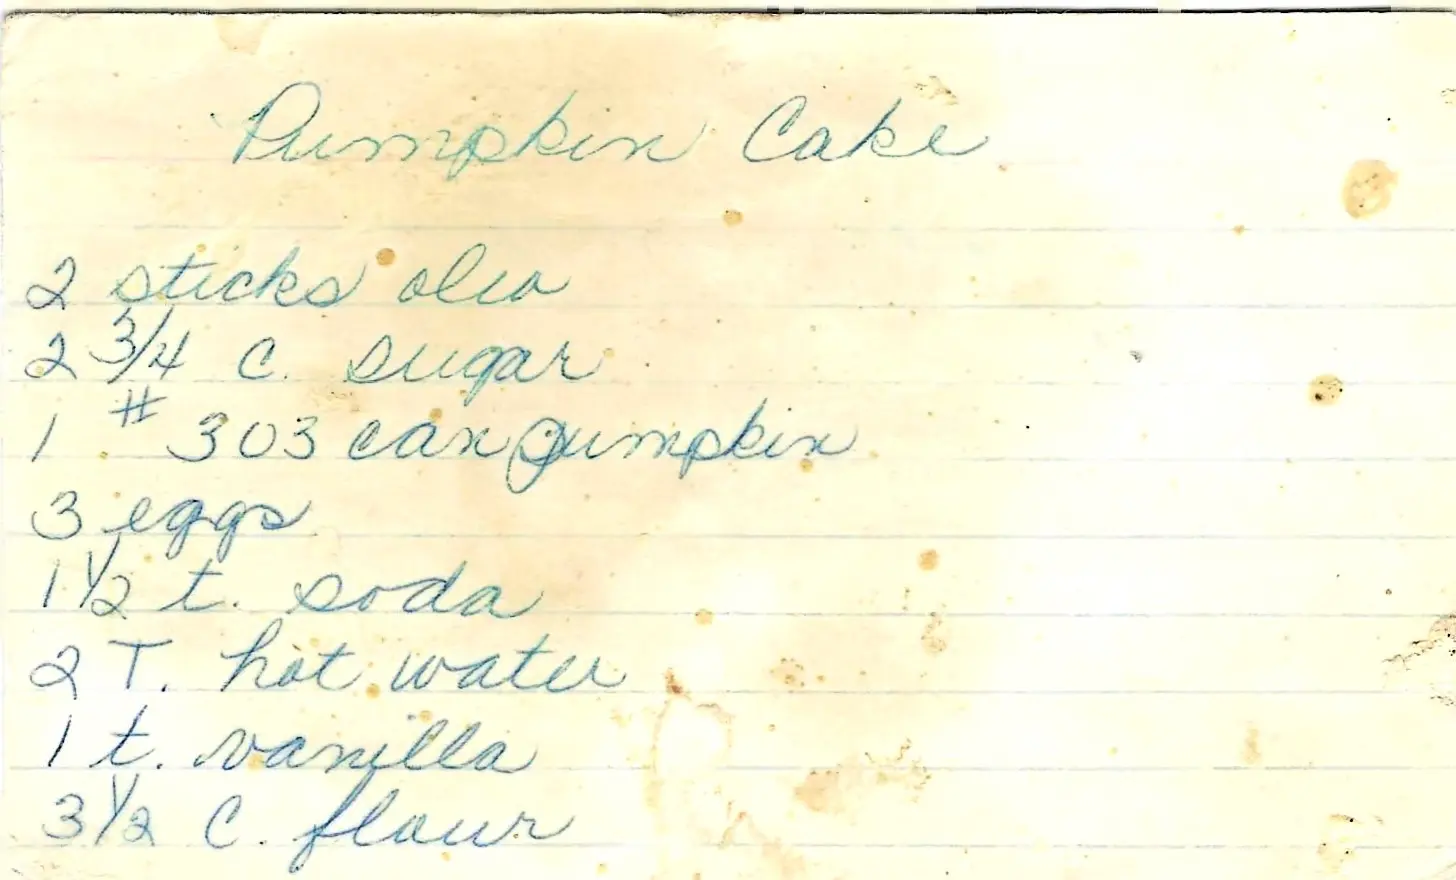 Pumpkin Cake
2 sticks oleo
2 3/4 c. sugar
1 # 303 can pumpkin
3 eggs
1 1/2 t. soda
2 T. hot water
1 t. vanilla
3 1/2 c. flour